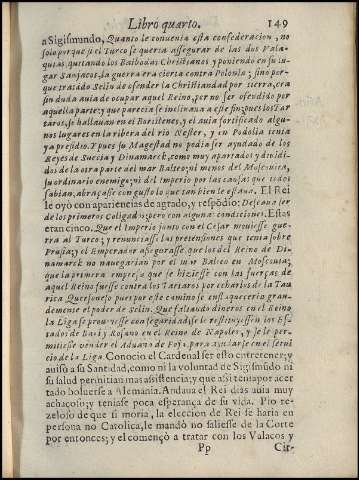 Libro quarto. 149
a Sigismundo, Quanto le convenia esta confederacion, no
solo porque si el Turco se queria assegurar de las dos Vala-
quias, quitando los Baibodas Christianos y poniendo en su lu-
gar Sanjacos, la guerra era cierta contra Polonia; sino por-
que tratado Selin de ofender la Christiandad por tierra, era
sin duda avia de ocupar aquel Reino, per no ser ofendido por
aquella parte; y que parecia se inclinava a este fin, pues los Tar
taros, se hallavan en el Boristenes, y el avia fortificado algu-
nos lugares en la ribera del rio Nester, y en Podolia tenia
ya presidio. Y pues su Magestad no podia ser ayudado de los
Reyes de Suecia y Dinamarck, como muy apartados y dividi-
dos de la otra parte del mar Balteo; ni menos del Moscovita,
su ordinario enemigo; ni del Imperio por las causas que todos
sabian, abraçasse con gusto lo que tan bien le estava. El Rei
le oyò con apariencias de agrado, y respōdio: Deseava ser
de los primeros Coligados; pero con alguna: condiciones. Estas
eran cinco. Que el Imperio junto con el Cesar moviesse guer-
ra al Turco; y renunciasse las pretensiones que tenia sobre
Prusia; y el Emperador assegurasse que los del Reino de Di-
namarck no navegarian por el mar Balteo en Moscovia;
que la primera empresa que se hiziesse con las fuerças de
aquel Reino fuesse contra los Tartaros por echarlos de la Tau
rica Quersoneso pues por este camino se enflaqueceria gran-
demente el poder de Selin. Que faltando dineros en el Reino
la Liga se proveiesse con seguridad; se le restituyessen los Es-
tados de Bari y Rosano en el Reino de Napoles, y se le per-
mitiesse vender el Aduana de Foja, para ayudarse en el servi
cio de la Liga. Conocio el Cardenal ser esto entretener; y
avisò a su Santidad, como ni la voluntad de Sigismūdo ni
su salud permitian mas assistencia; y que assi tenia por acer
tado bolverse a Alemania. Andava el Rei dias avia muy
achacoso; y teniase poca esperança de su vida. Pio re-
zeloso de que si moria, la eleccion de Rei se haria en
persona no Catolica, le mandò no saliesse de la Corte
por entonces; y el començò a tratar con los Valacos y
Pp Cir-